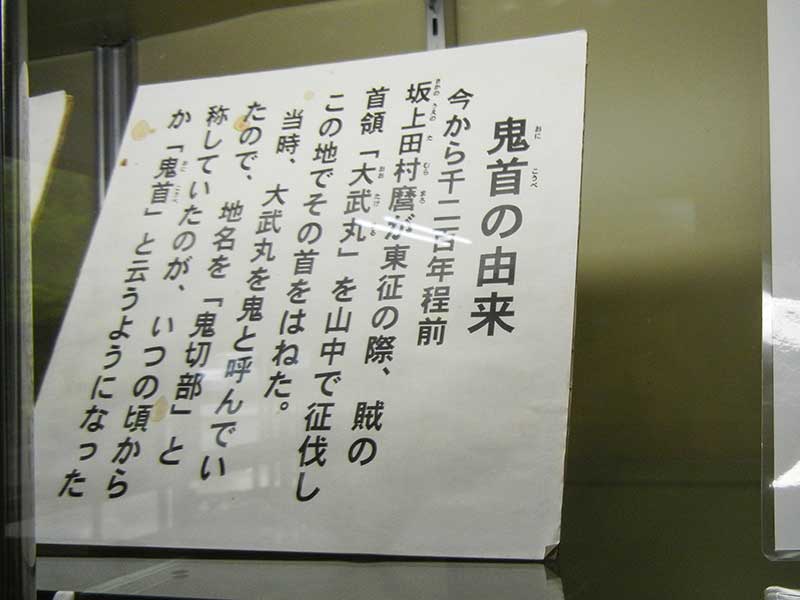 鬼首の由来
今から千二百年程前
坂上田村麿が東征の際、賊の
首領「大武丸」を山中で征伐し
この地でその首をはねた。
当時、大武丸を鬼と呼んでい
たので、地名を「鬼切部」と
称していたのが、いつの頃から
か「鬼首」と云うようになった